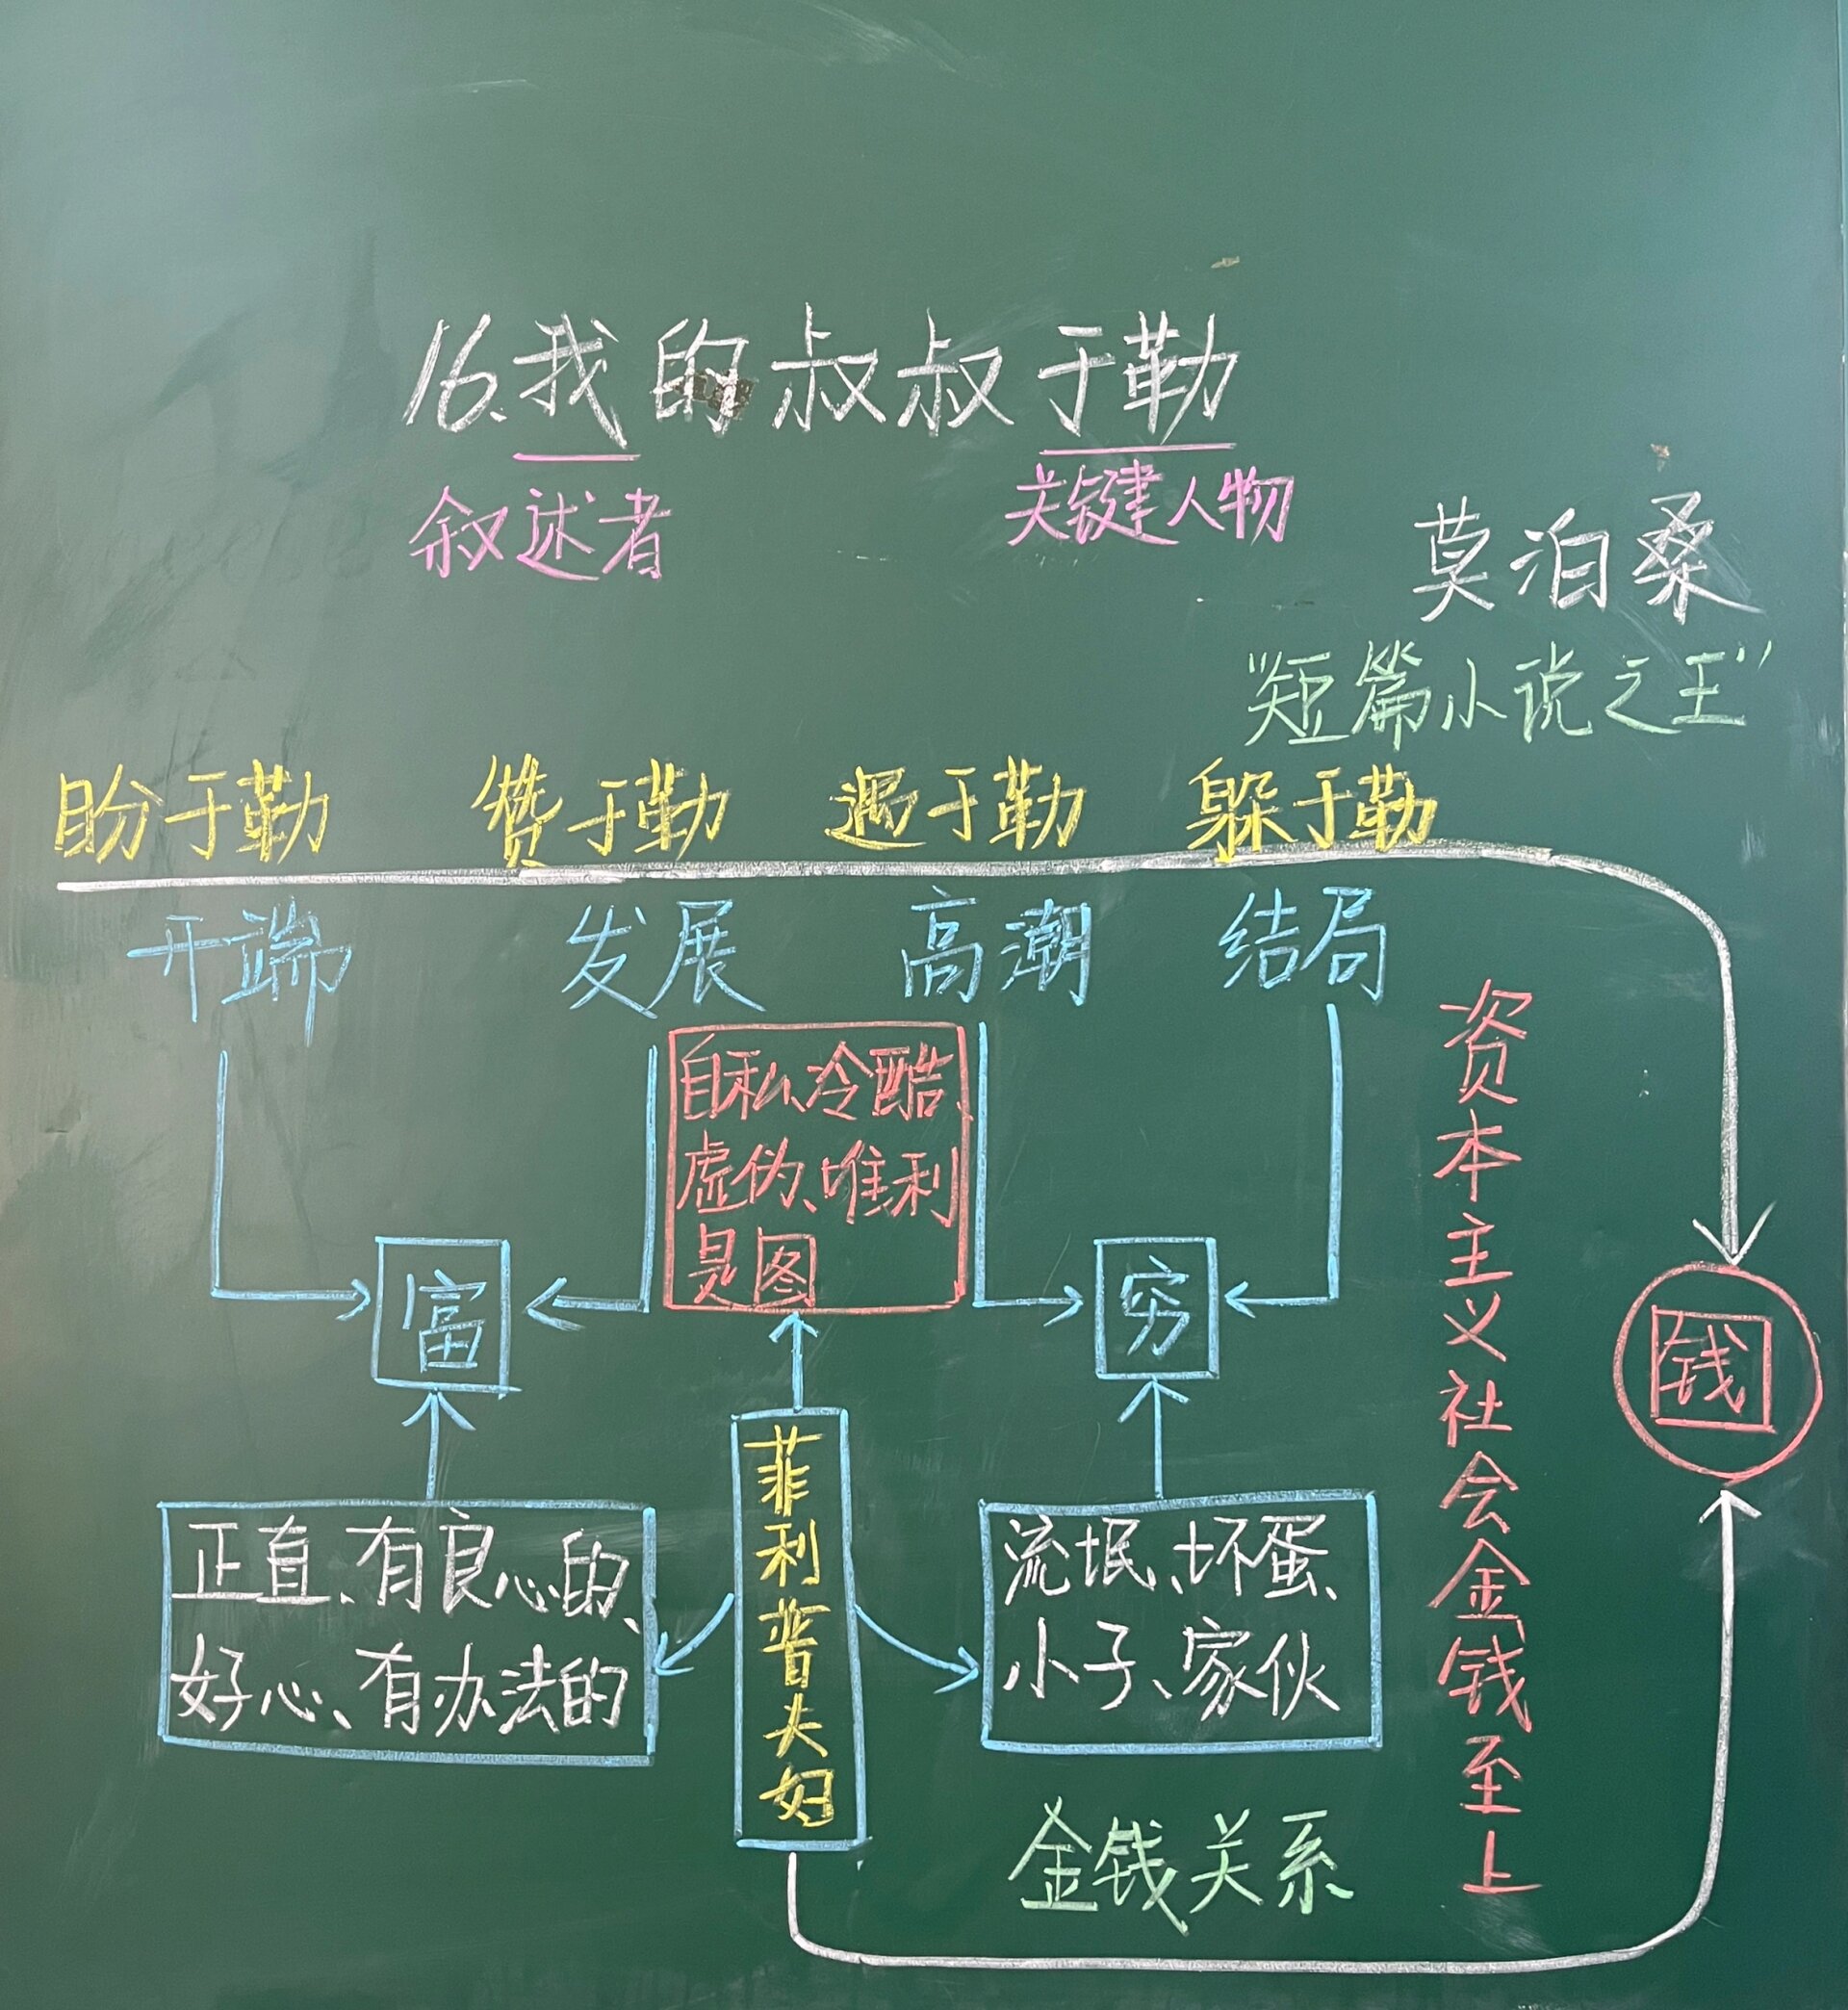 16.我的叔叔于勒
叙述者
关键人物
莫泊桑
“短篇小说之王”
盼于勒 赞于勒 遇于勒 躲于勒
开端 发展 高潮 结局
自私、冷酷、
虚伪、唯利
是图
富
穷
钱
正直、有良心的、
好心、有办法的
菲利普夫妇
流氓、坏蛋、
小子、家伙
资本主义社会金钱至上
金钱关系